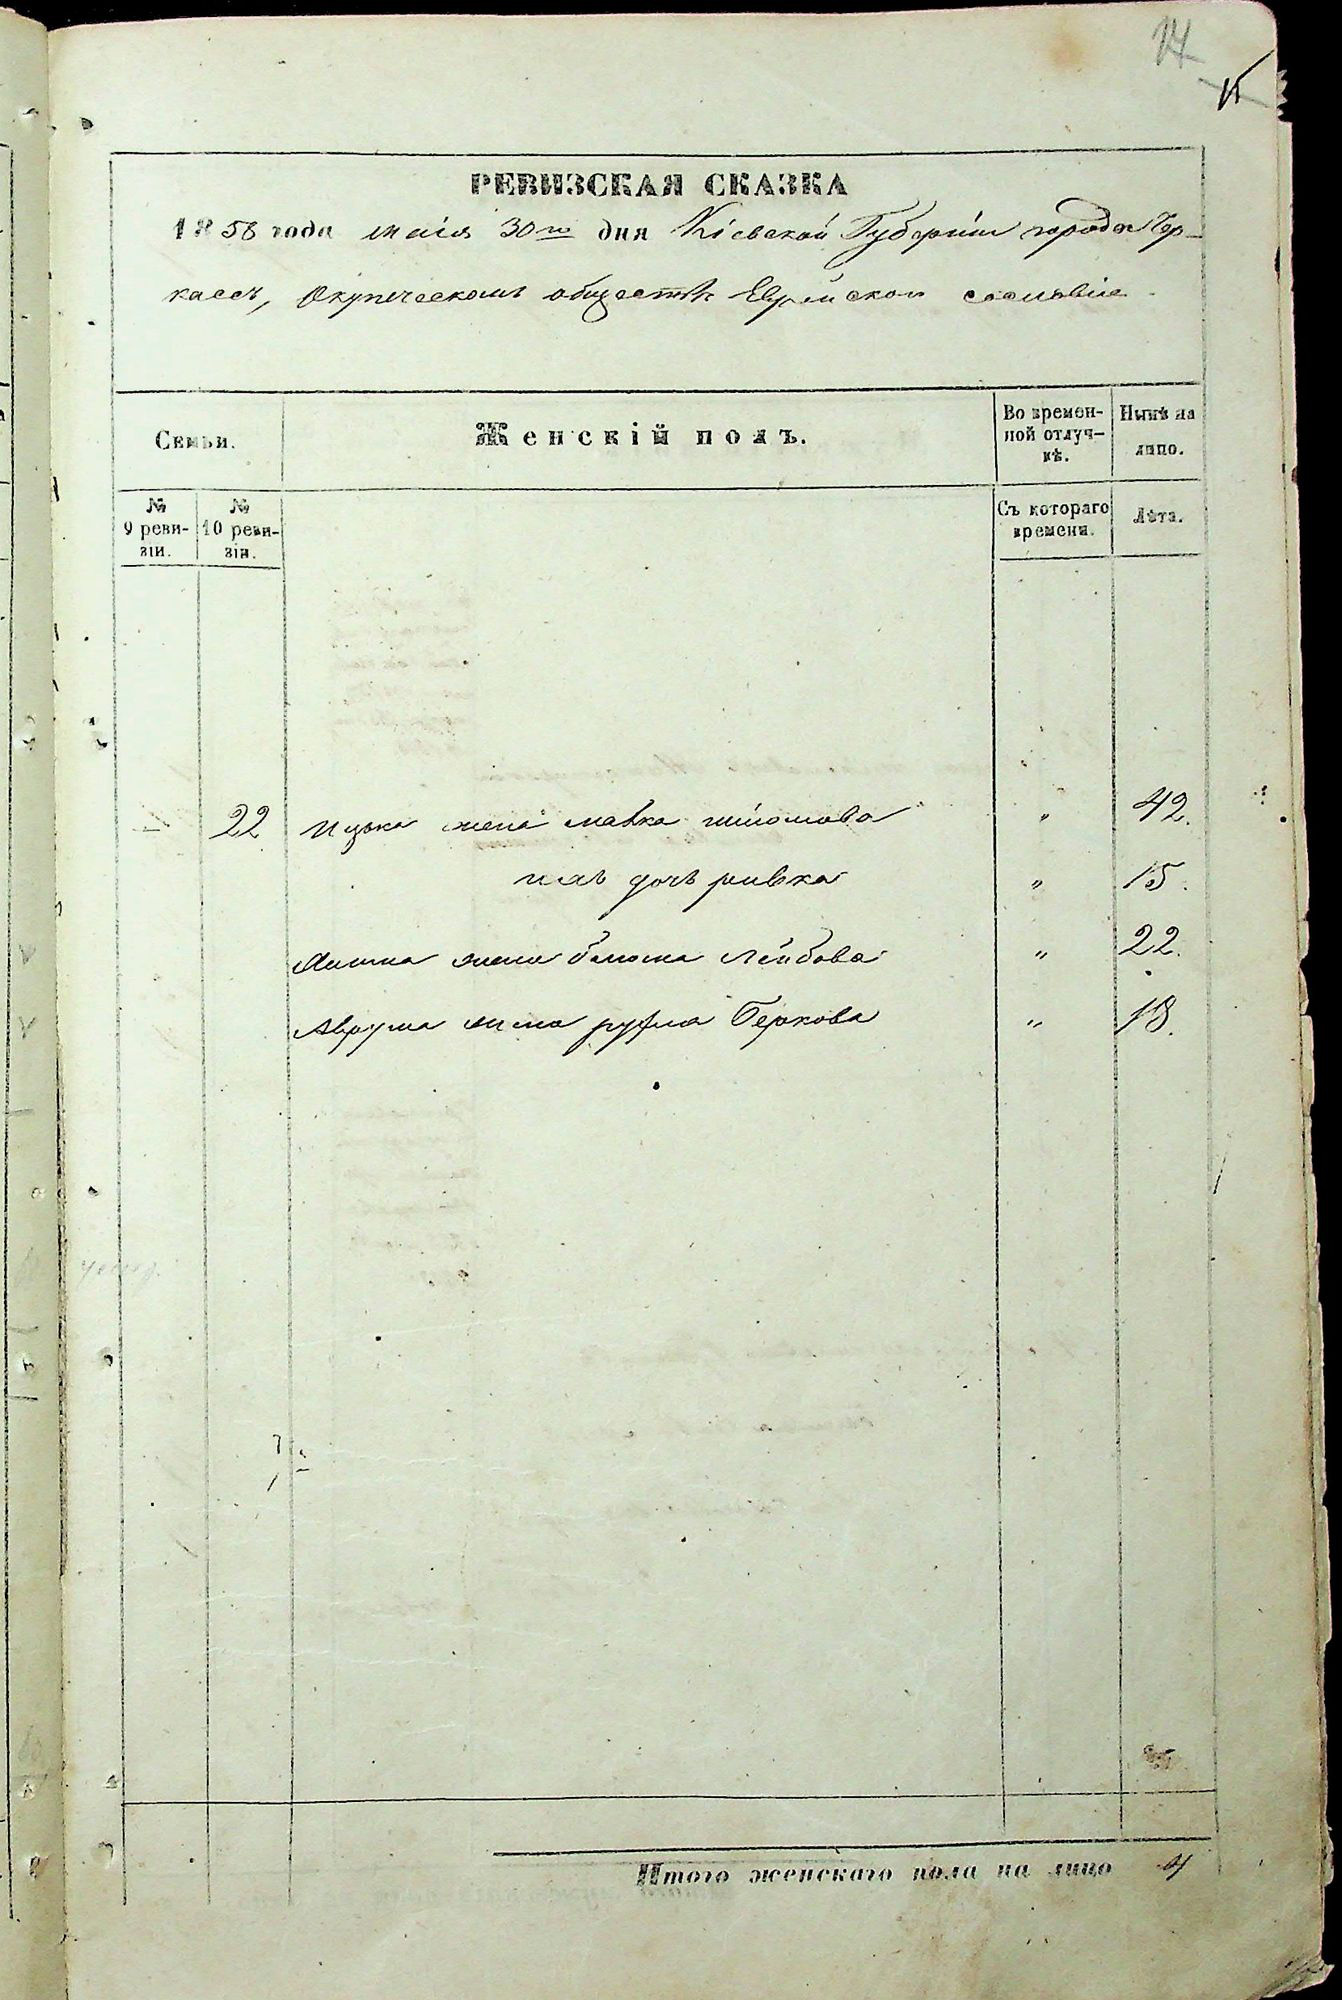 14
15
РЕВИЗСКАЯ СКАЗКА
1858 года маія 30го дня Кіевской Губерніи города Чер-
кассъ, Окупеческомъ обществѣ Еврейскои сословіе
Семьи.
Женскій полъ.
Во времен-
ной отлуч-
кѣ.
Нынѣ на
лицо.
№
9 реви-
зіи.
№
10 реви-
зіи.
Съ котораго
времени.
Лѣта.
22 Ицька жена Малка Шліомова " 42.
ихъ дочь ривка " 15.
жена Лейбова " 22.
Аврума жена рухля Беркова " 18.
Итого женскаго пола на лицо 4